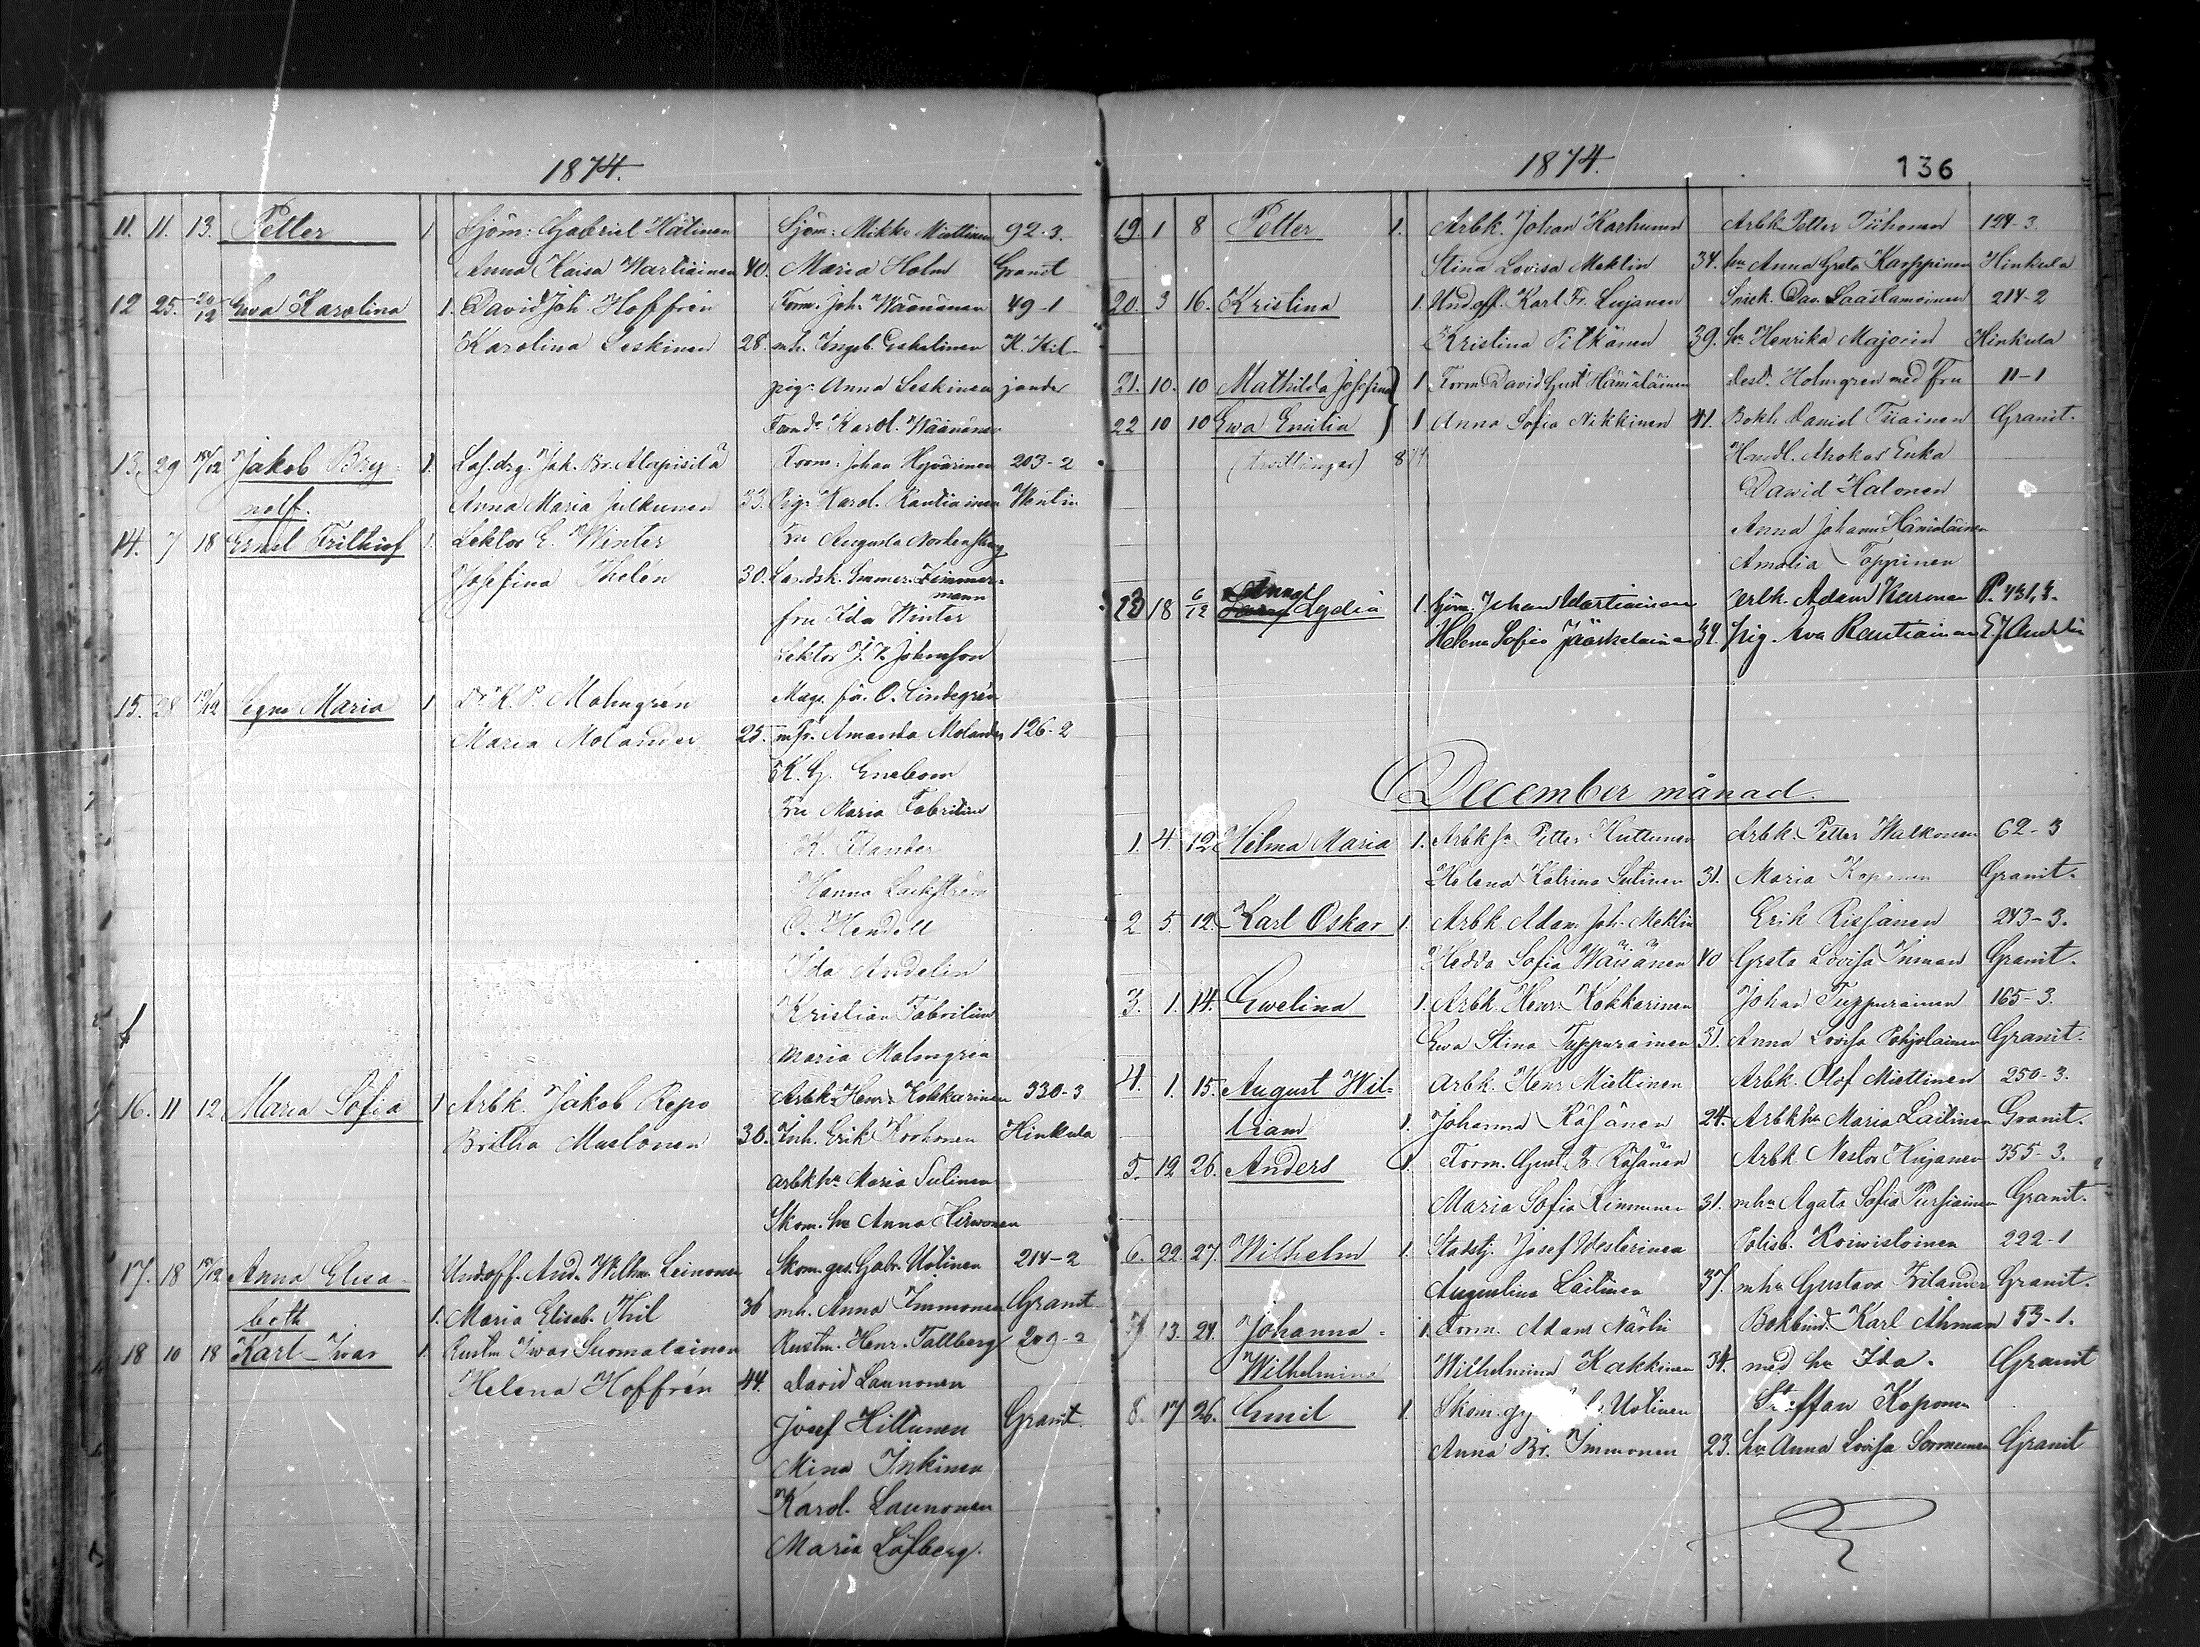 1874.
11. 11. 13. Petter 1 Sjöm: Gabriel Hätinen Sjöm: Mikko Miettinen 92-3.
Anna Kaisa Wartiainen 40. Maria Holm Granit
12 25. 20/12 Ewa Karolina 1. David Joh. Hoffrén Form. Joh. Wäänänen 49-1
Karolina Leskinen 28. mh. Ingeb. Eskelinen K. Kil-
pig. Anna Leskinen jander
Karol. Wäänänen
13. 29 /12 Jakob Bry- 1. Joh. Br. Alapisilä Form. Johan Hyvärinen 203-2
nolf. Anna Maria Julkunen 33. Pig. Karol. Rautiainen Wentin
14. 7 18 Ernst Frithiof 1. Lektor E. Winter Fru Augusta
Josefina Thelén 30. Landsk. Zimmer-
mann
fru Ida Winter
Lektor Johnsson
15. 28 /12 Signe Maria 1 Dr K. P. Malmgrén Mag. O. Lindegrén
Maria Molander 25. Amanda Molander 126-2
K. G. Enebom
Fru Maria Fabritius
K. Elander
Hanna Lackström
O. Hendell
Ida Andelin
Kristian Fabritius
Maria Malmgrén
16. 11 12 Maria Sofia 1 Arbk. Jakob Repo Arbk. Henr. Kokkarinen 330-3
Britha Mustonen 30. Inh. Erik Korhonen Hinkula
Arbkhu Maria Sutinen
Skom. hu Anna Hirwonen
17. 18 /12 Anna Elisa- Undoff. And. Wilhm Leinonen Skom. ges. Gabr. Utinen 214-2
beth. 1. Maria Elisab. Thil 36 mh. Anna Immonen Granit
18 10 18 Karl Iwar 1. Rustm Iwar Suomalainen Rustm. Henr. Tallberg 209-2
Helena Hoffrén 44. David Launonen
Josef Hiltunen Granit.
Mina Inkinen
Karol. Launonen
Maria Löfberg.
1874. 136
19. 1 8 Petter 1. Arbk. Johan Karhunen Arbk. Petter Tiihonen 124-3.
Stina Lovisa Meklin 34. hu Anna Greta Karppinen Hinkula
20. 3 16. Kristina 1. Undoff. Karl Fr. Lujanen Snick. Dav. Laastamoinen 214-2
Kristina Pitkänen 39. hu Henrika Majorin Hinkula
21. 10. 10 Mathilda Josefina 1 Form. David Gust. Hämäläinen dest. Holmgrén med Fru 11-1
22 10 10 Ewa Emilia 1 Anna Sofia Nikkinen 41. Bokh. Daniel Tiainen Granit.
(twillingar) Handl. Mokas Enka
Dawid Halonen
Anna Johanna Hämäläinen
Amalia Toppinen
23 18 6/12 Anna Lydia 1. Sjöm. Johan Wartiainen Arbk. Adam Karonen P. 431,3.
Helena Sofia Jääskelainen 34. Pig. Ava Rautiainen E J Andelin
December månad.
1. 4. 12 Hilma Maria 1. Arbk. Petter Huttunen Arbk. Petter Walkonen 62-3
Helena Katrina Sutinen 31. Maria Koponen Granit.
2 5. 12. Karl Oskar 1. Arbk Adam Joh. Meklin Erik Rissanen 243-3.
Hedda Sofia Wäisänen 40 Greta Lovisa Inman Granit.
3. 1. 14. Ewelina 1. Arbk. Henr. Kokkarinen Johan Tuppurainen 165-3.
Ewa Stina Tuppurainen 31. Anna Lovisa Pohjolainen Granit.
4. 1. 15. August Wil- Arbk. Henr Miettinen Arbk. Olof Miettinen 250-3.
liam 1. Johanna Räsänen 24. Arbkhu Maria Laitinen Granit.
5. 12 26. Anders 1. Form. Gust. Räsänen Arbk. Nestor Hujanen 355-3.
Maria Sofia Kinnunen 31. mhu Agata Sofia Pursiainen Granit.
6. 22. 27. Wilhelm 1. Stadstj. Josef Westerinen Polisb. Koiwistoinen 222-1
Augustina Laitinen 37. mhu Gustava Frilander Granit.
7 13. 24. Johanna- 1. Form. Adam Närhi Bokbind. Karl Åhman 53-1.
Wilhelmina Wilhelmina Kakkinen 34. med hu Ida. Granit
8. 17 26. Emil 1. Skom. Utinen Staffan Koponen
Anna Br. Immonen 23. hu Anna Lovisa Sormunen Granit